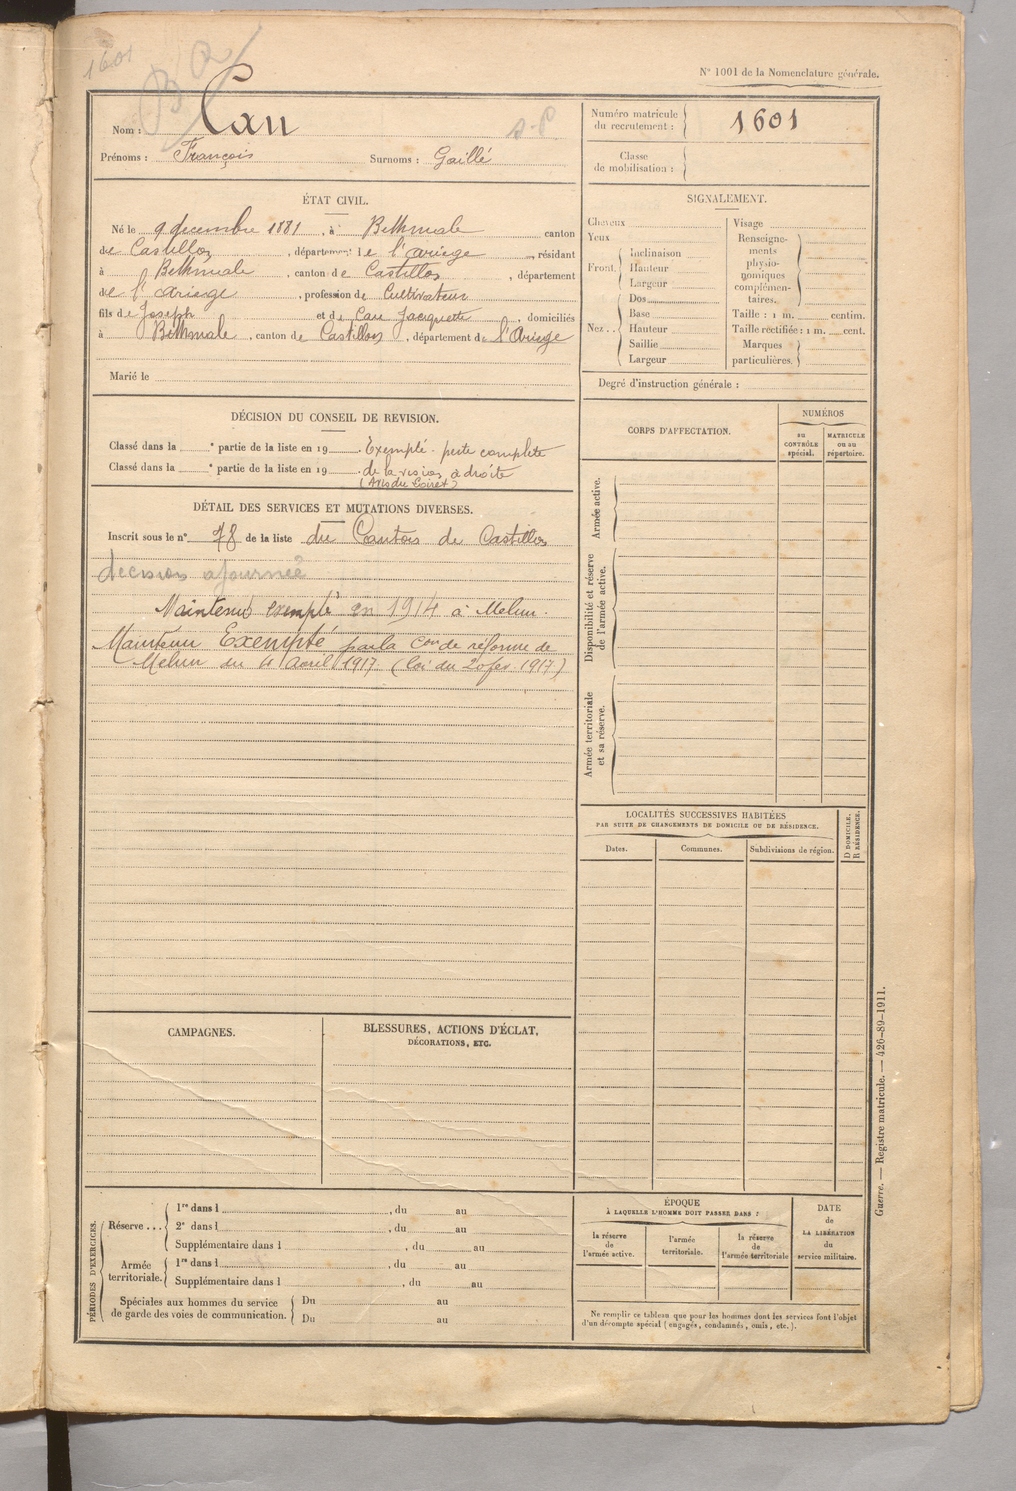 1601
N° 1001 de la Nomenclature générale.
Nom : Cau
Prénoms : François Surnoms : Gaillé
Numéro matricule du recrutement : 1601
Classe de mobilisation :
ÉTAT CIVIL.
Né le 9 decembre 1881, à Bethmale canton
de Castillon, département de l'ariège, résidant
à Bethmale, canton de Castillon, département
de l'ariège, profession de Cultivateur
fils de Joseph et de Cau Jacquette, domiciliés
à Bethmale, canton de Castillon, département de l'Ariège
Marié le
SIGNALEMENT.
Cheveux
Yeux
Front.
Inclinaison
Hauteur
Largeur
Nez..
Dos
Base
Hauteur
Saillie
Largeur
Visage
Renseigne-
ments
physio-
nomiques
complémen-
taires.
Taille : 1 m. centim.
Taille rectifiée : 1 m. cent.
Marques
particulières.
Degré d'instruction générale :
DÉCISION DU CONSEIL DE REVISION.
Classé dans la e partie de la liste en 19 Exempté - perte complète
Classé dans la e partie de la liste en 19 de la vision à droite
(Avis du Loiret)
DÉTAIL DES SERVICES ET MUTATIONS DIVERSES.
Inscrit sous le n° 78 de la liste du Canton de Castillon
decision ajournée
Maintenu exempté en 1914 à Melun.
Maintenu Exempté par la Con de réforme de
Melun du 4 avril 1917 (loi du 20 fev. 1917)
CORPS D'AFFECTATION.
NUMÉROS
au CONTRÔLE spécial.
MATRICULE ou au répertoire.
Armée active.
Disponibilité et réserve de l'armée active.
Armée territoriale et sa réserve.
LOCALITÉS SUCCESSIVES HABITÉES
PAR SUITE DE CHANGEMENTS DE DOMICILE OU DE RÉSIDENCE.
Dates.
Communes.
Subdivisions de région.
D DOMICILE.
R RÉSIDENCE.
CAMPAGNES.
BLESSURES, ACTIONS D'ÉCLAT,
DÉCORATIONS, ETC.
PÉRIODES D'EXERCICES.
Réserve ...
1re dans l , du au
2e dans l , du au
Supplémentaire dans l , du au
Armée territoriale.
1re dans l , du au
Supplémentaire dans l , du au
Spéciales aux hommes du service
de garde des voies de communication.
Du au
Du au
ÉPOQUE
À LAQUELLE L'HOMME DOIT PASSER DANS :
la réserve de l'armée active.
l'armée territoriale.
la réserve de l'armée territoriale
DATE
de
LA LIBÉRATION
du
service militaire.
Ne remplir ce tableau que pour les hommes dont les services font l'objet
d'un décompte spécial (engagés, condamnés, omis, etc.).
Guerre. — Registre matricule. — 426-89-1911.